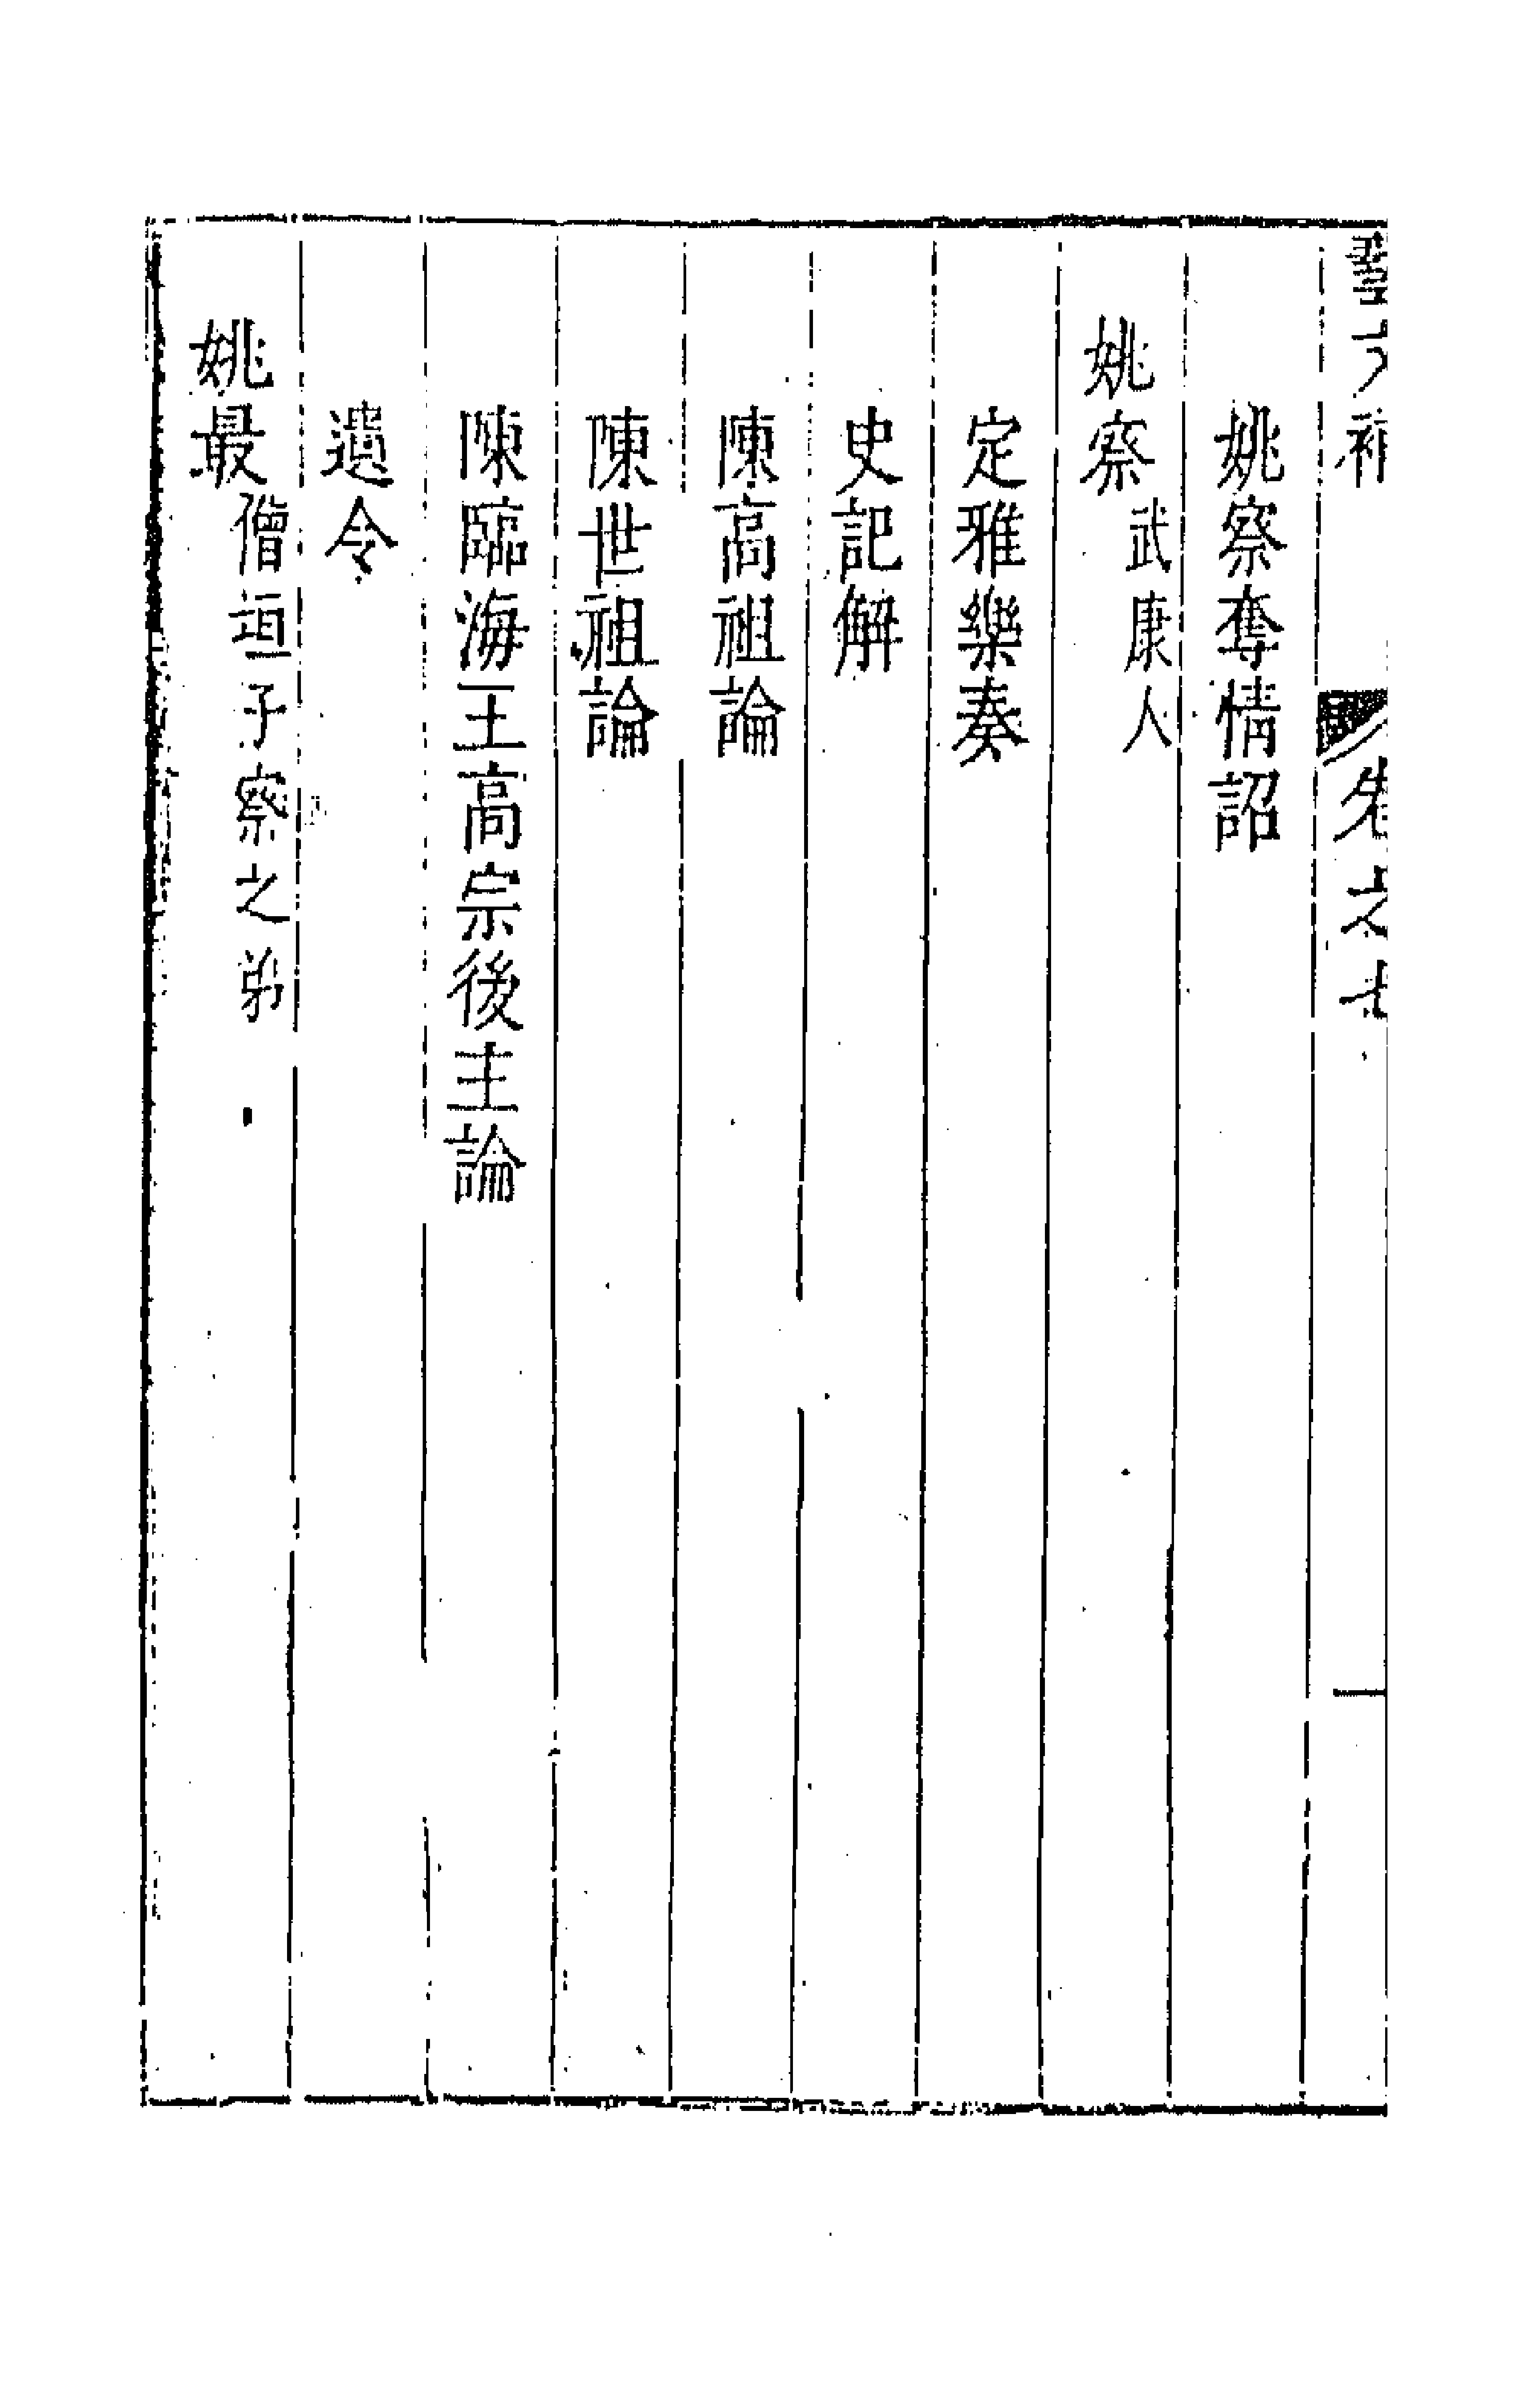 姚察奪情詔
姚察武康人
定雅樂奏
史記解
陳高祖論
陳世祖論
陳臨海王高宗後主論
遺令
姚最僧垣子察之弟